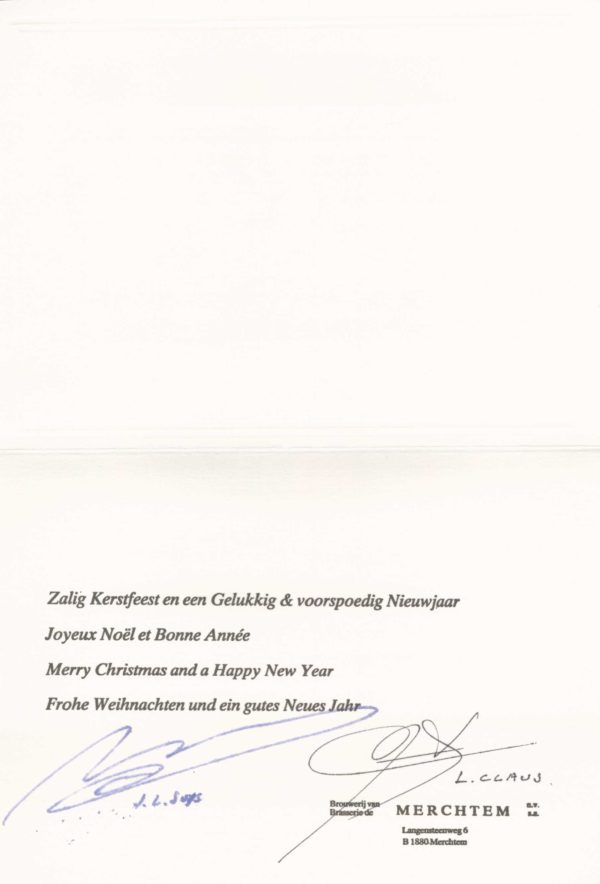 Zalig Kerstfeest en een Gelukkig & voorspoedig Nieuwjaar
Joyeux Noël et Bonne Année
Merry Christmas and a Happy New Year
Frohe Weihnachten und ein gutes Neues Jahr
J.L. Suys
L. CLAUS.
Brouwerij van
Brasserie de
MERCHTEM
n.v.
s.a.
Langensteenweg 6
B 1880 Merchtem